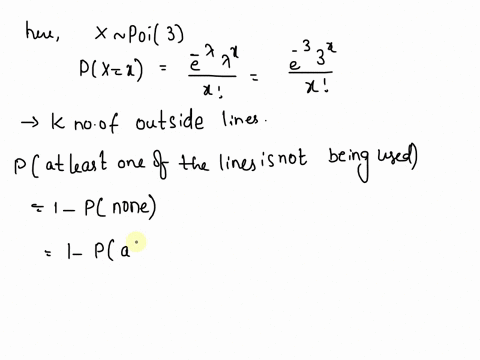 here, X ~ Poi(3)
P(X=x) = e^-λ λ^x / x! = e^-3 3^x / x!
→ K no. of outside lines.
P(at least one of the lines is not being used)
= 1 - P(none)
= 1 - P(a